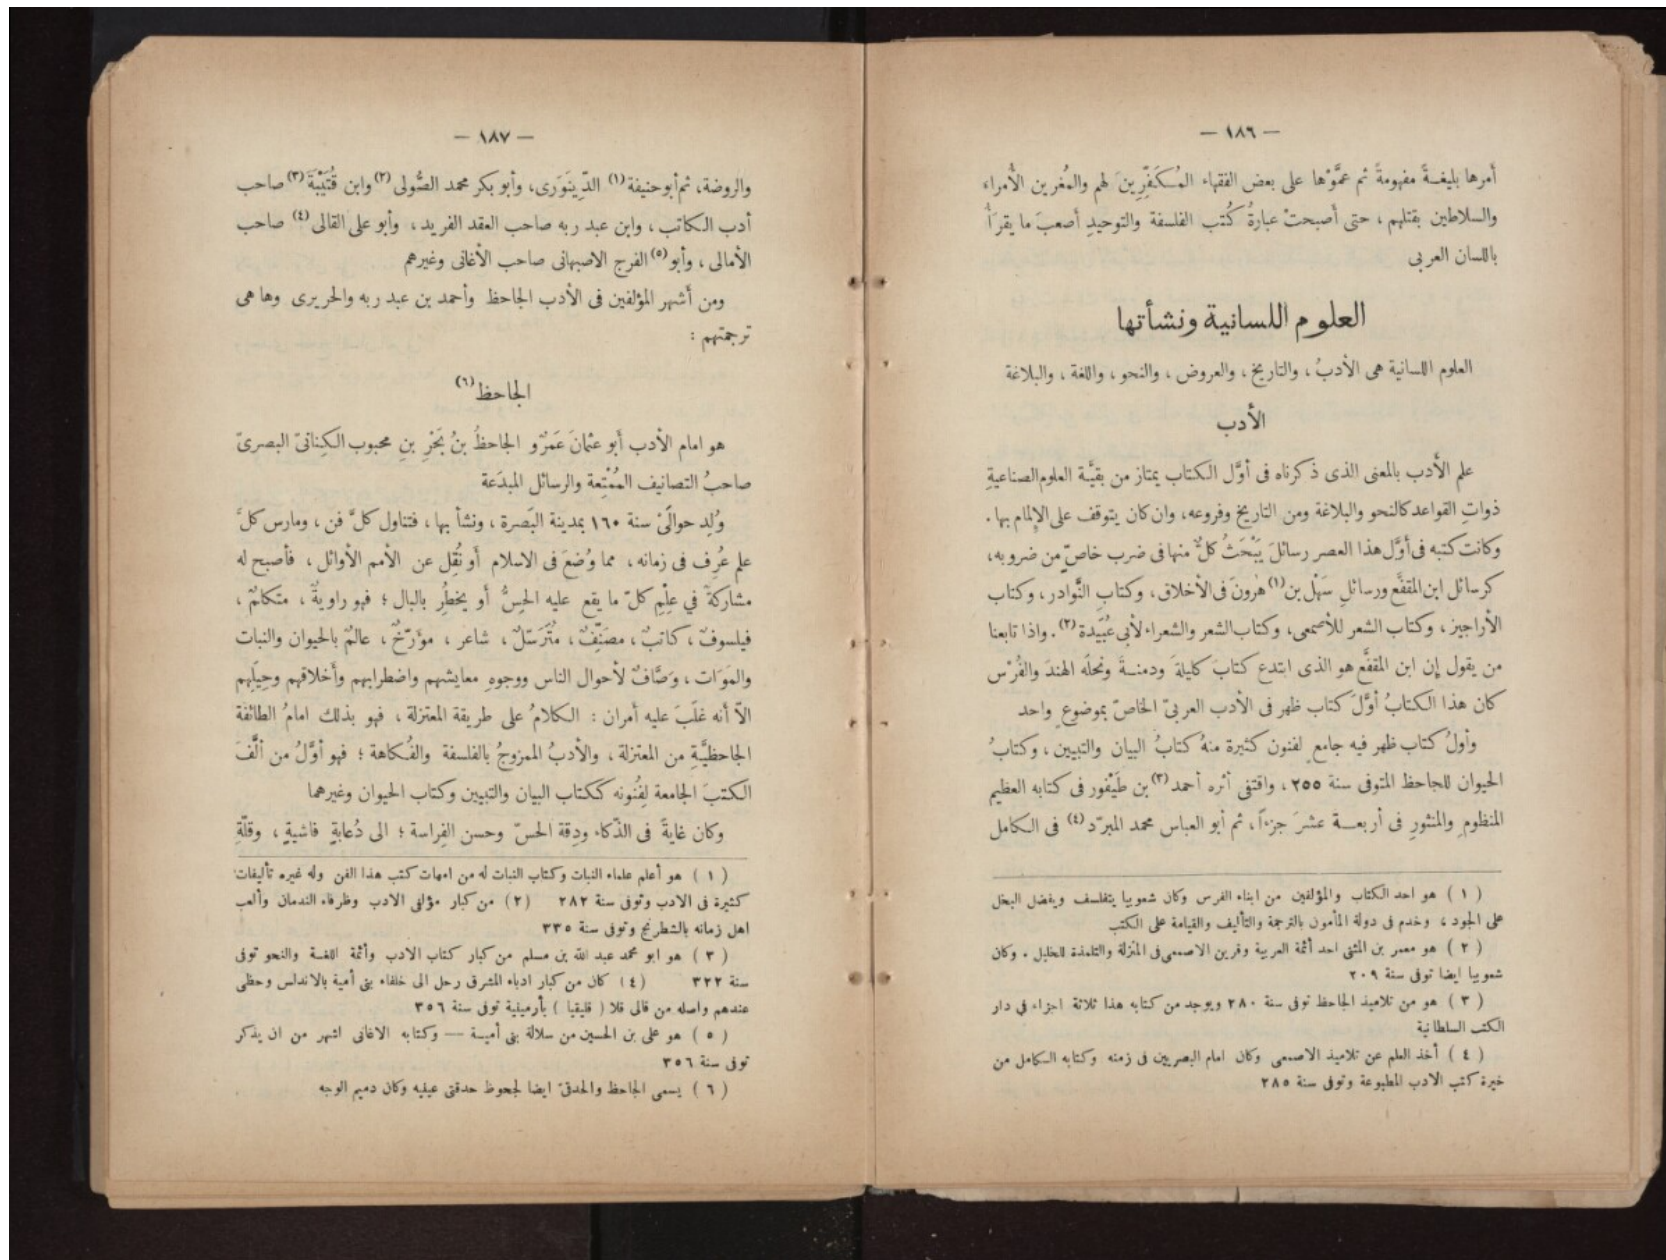 — ١٨٦ —
أمرها بليغةً مفهومةً ثم عمَّوْها على بعض الفقهاء المُكَفِّرِينَ لهم والمُغرين الأمراء
والسلاطين بقتلهم ، حتى أصبحتْ عبارةُ كُتب الفلسفة والتوحيدِ أصعبَ ما يقرأُ
باللسان العربى
العلوم اللسانية ونشأتها
العلوم اللسانية هى الأدبُ ، والتاريخ ، والعروض ، والنحو ، واللغة ، والبلاغة
الأدب
علم الأدب بالمعنى الذى ذكرناه فى أوَّل الكتاب يمتاز من بقيَّة العلوم الصناعيةِ
ذواتِ القواعد كالنحو والبلاغة ومن التاريخ وفروعه، وان كان يتوقف على الإلمام بها .
وكانت كتبه فى أوَّل هذا العصر رسائلَ يَبْحَثُ كلٌّ منها فى ضرب خاصّ من ضروبه،
كرسائل ابن المقفَّع ورسائلِ سَهْل بن (١) هٰرونَ فى الأخلاق ، وكتابِ النَّوادر ، وكتاب
الأراجيز ، وكتاب الشعر للأصمعى، وكتاب الشعر والشعراء لأبى عُبَيدة (٢) . واذا تابعنا
من يقول إن ابن المقفَّع هو الذى ابتدع كتابَ كليلةَ ودمنــةَ ونحلَه الهندَ والفُرْس
كان هذا الكتابُ أوَّلَ كتاب ظهر فى الأدب العربىّ الخاصّ بموضوعٍ واحد
وأولُ كتاب ظهر فيه جامعٍ لفنون كثيرة منهُ كتابُ البيان والتبيين ، وكتابُ
الحيوان للجاحظ المتوفى سنة ٢٥٥ ، واقتفى أثره أحمد (٣) بن طَيْفور فى كتابه العظيم
المنظومِ والمنثورِ فى أربعــة عشرَ جزءاً ، ثم أبو العباس محمد المبرّد (٤) فى الكامل
( ١ ) هو احد الكتاب والمؤلفين من ابناء الفرس وكان شعوبيا يتفلسف ويفضل البخل
على الجود ، وخدم فى دولة المأمون بالترجمة والتأليف والقيامة على الكتب
( ٢ ) هو معمر بن المثنى احد أئمة العربية وقرين الاصمعى فى المنزلة والتلمذة للخليل . وكان
شعوبيا ايضا توفى سنة ٢٠٩
( ٣ ) هو من تلاميذ الجاحظ توفى سنة ٢٨٠ ويوجد من كتابه هذا ثلاثة اجزاء في دار
الكتب السلطانية
( ٤ ) أخذ العلم عن تلاميذ الاصمعى وكان امام البصريين فى زمنه وكتابه الكامل من
خيرة كتب الادب المطبوعة وتوفى سنة ٢٨٥
— ١٨٧ —
والروضة، ثم أبو حنيفة (١) الدِّينَوَرى، وأبو بكر محمد الصُّولى (٢) وابن قُتَيْبَةَ (٣) صاحب
أدب الكاتب ، وابن عبد ربه صاحب العقد الفريد ، وأبو على القالى (٤) صاحب
الأمالى ، وأبو (٥) الفرج الاصبهانى صاحب الأغانى وغيرهم
ومن أشهر المؤلفين فى الأدب الجاحظ وأحمد بن عبد ربه والحريرى وها هى
ترجمتهم :
الجاحظ (٦)
هو امام الأدب أبو عثمانَ عَمرٌو الجاحظُ بنُ بَحْرِ بنِ محبوب الكِنانىّ البصرىّ
صاحبُ التصانيف المُمْتِعة والرسائل المبدَعة
وُلِد حوالَىْ سنة ١٦٠ بمدينة البَصرة ، ونشأ بها ، فتناول كلَّ فن ، ومارس كلَّ
علم عُرِف فى زمانه ، مما وُضعَ فى الاسلام أو نُقِل عن الأمم الأوائل ، فأصبح له
مشاركةٌ في علِمِ كلّ ما يقع عليه الحِسُّ أو يخطُرِ بالبال ؛ فهو راويةٌ ، متكلمٌ ،
فيلسوفٌ ، كاتبٌ ، مصَنِّفٌ ، مُتَرَسّلٌ ، شاعر ، مؤرّخٌ ، عالمٌ بالحيوان والنبات
والمَوَات ، وَصَّافٌ لأحوال الناس ووجوهِ معايشهم واضطرابهم وأخلاقهم وحِيَلِهم
الاّ أنه غلَبَ عليه أمران : الكلامُ على طريقة المعتزلة ، فهو بذلك امامُ الطائفة
الجاحظيَّةِ من المعتزلة ، والأدبُ الممزوجُ بالفلسفة والفُكاهة ؛ فهو أوَّلُ من ألَّفَ
الكتبَ الجامعة لِفُنونه ككتاب البيان والتبيين وكتاب الحيوان وغيرهما
وكان غايةً فى الذّكاء ودِقة الحسّ وحسن الفِراسة ؛ الى دُعابةٍ فاشيةٍ ، وقلّةِ
( ١ ) هو أعلم علماء النبات وكتاب النبات له من امهات كتب هذا الفن وله غيره تأليفات
كثيرة فى الادب وتوفى سنة ٢٨٢ ( ٢ ) من كبار مؤلفى الادب وظرفاء الندمان وألعب
اهل زمانه بالشطرنج وتوفى سنة ٣٣٥
( ٣ ) هو ابو محمد عبد الله بن مسلم من كبار كتاب الادب وأئمة اللغــة والنحو توفى
سنة ٣٢٢ ( ٤ ) كان من كبار ادباء المشرق رحل الى خلفاء بنى أمية بالاندلس وحظى
عندهم واصله من قالى قلا ( قليقيا ) بأرمينية توفى سنة ٣٥٦
( ٥ ) هو على بن الحسين من سلالة بنى أميــة — وكتابه الاغانى اشهر من ان يذكر
توفى سنة ٣٥٦
( ٦ ) يسمى الجاحظ والحدقىّ ايضا لجحوظ حدقتى عينيه وكان دميم الوجه